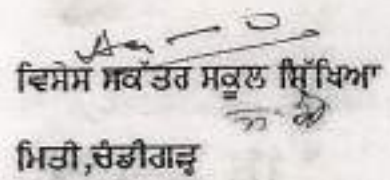 ਵਿਸੇਸ ਸਕੱਤਰ ਸਕੂਲ ਸਿੱਖਿਆ
ਮਿਤੀ,ਚੰਡੀਗੜ੍ਹ